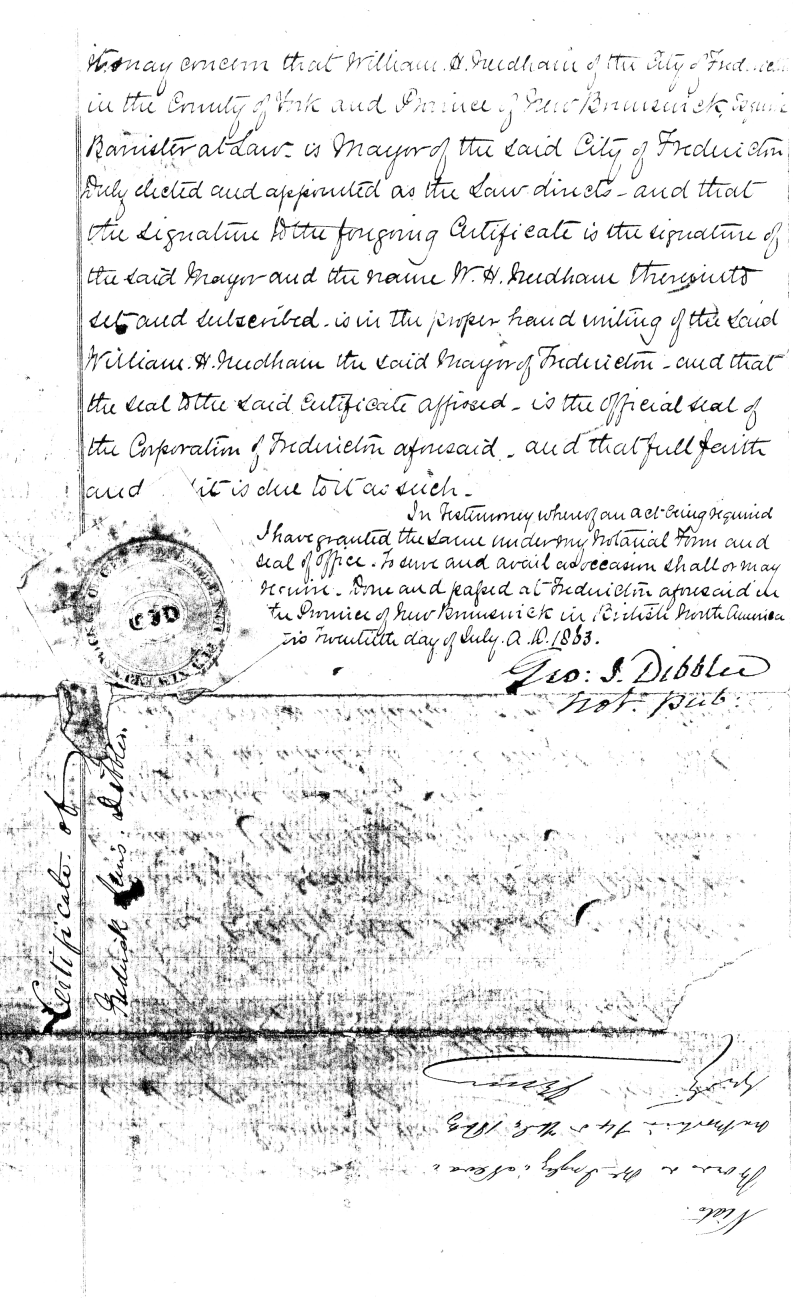 it may concern that William. H. Needham of the City of
in the County of York and Province of New Brunswick, Esquire
Barrister at Law - is Mayor of the said City of Fredericton
Duly elected and appointed as the Law directs - and that
the signature to the foregoing Certificate is the signature of
the said Mayor and the name W. H. Needham thereunto
set and subscribed - is in the proper hand writing of the said
William. H. Needham the said Mayor of Fredericton - and that
the seal to the said Certificate affixed - is the official seal of
the Corporation of Fredericton aforesaid - and that full faith
and it is due to it as such -
In Testimoney whereof an act being required
I have granted the same under my Notarial Form and
seal of office. To serve and avail as occasion shall or may
require. Done and passed at Fredericton aforesaid in
the Province of New Brunswick in British North America
this Twentieth day of July. A. D. 1863.
Geo: J. Dibblee
Not. pub:
Certificate of
Frederick Lewis. Dibblee.